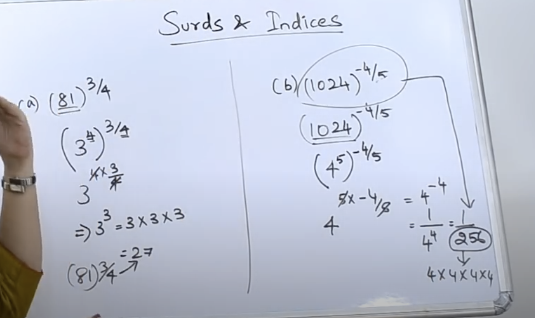 Surds & Indices
(a) (81)^3/4
(3^4)^3/4
3^4×3/4
⇒ 3^3 = 3×3×3
= 27
(81)^3/4
(b) (1024)^-4/5
(1024)^-4/5
(4^5)^-4/5
4^5×-4/5 = 4^-4
= 1/4^4 = 1/256
4×4×4×4